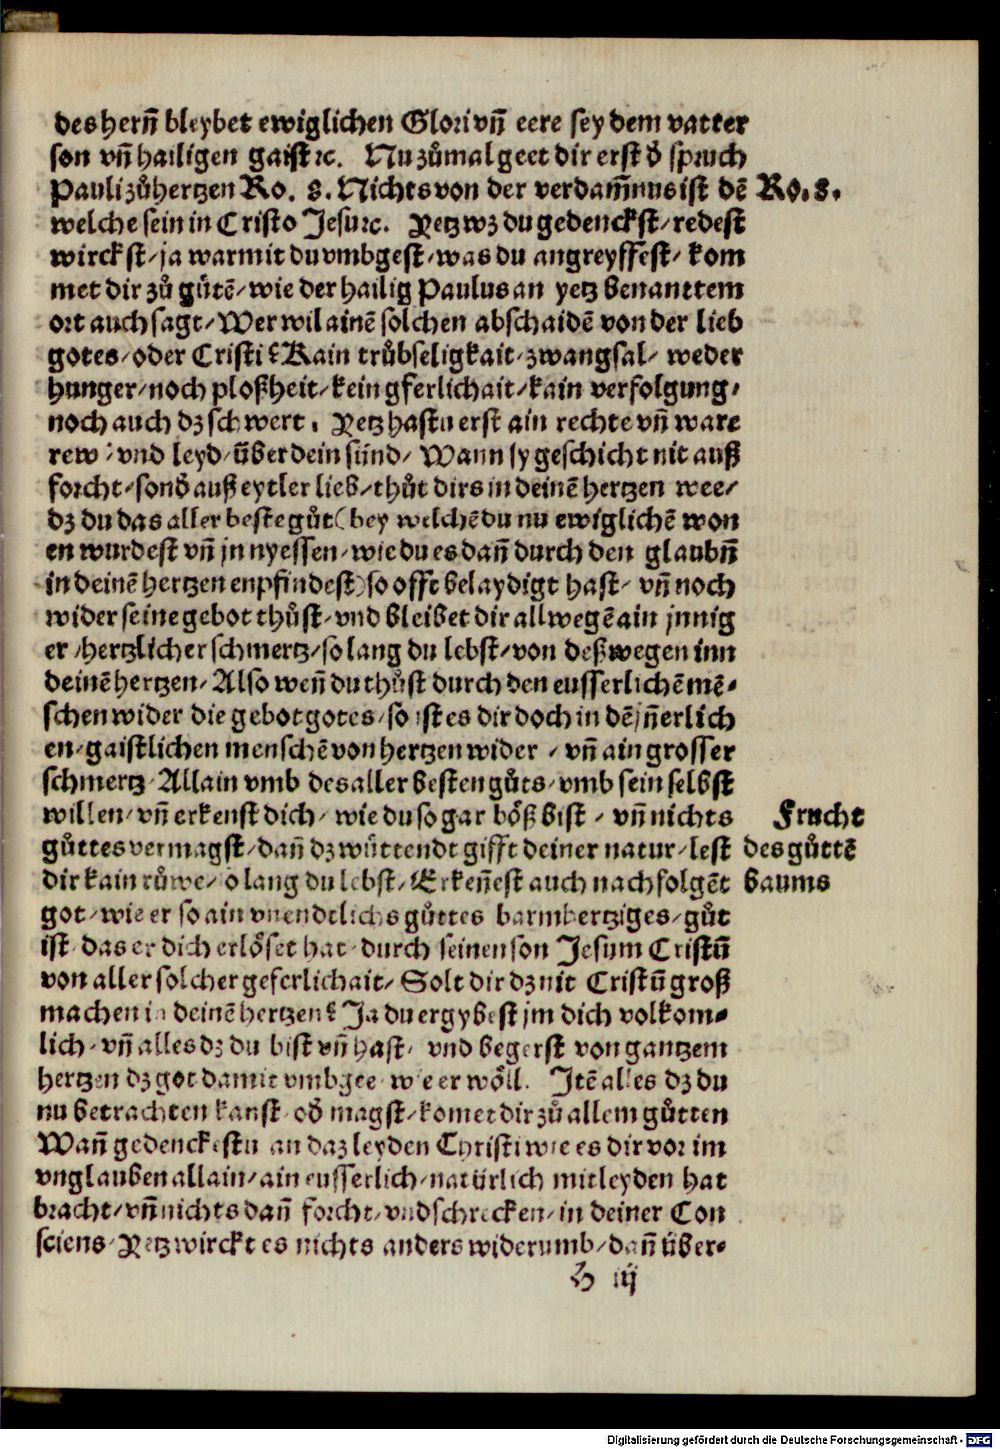 des hern̄ bleybet ewiglichen Glori vn̄ eere sey dem vatter
son vn̄ hailigen gaist ꝛc. Nu zůmal geet dir erst ð spruch
Pauli zů hertzen Ro. 8. Nichts von der verdam̄nus ist dē Ro. 8.
welche sein in Cristo Jesu ꝛc. Yetz wz du gedenckst/ redest
wirckst/ ja warmit du vmbgest/ was du angreyffest/ kom
met dir zů gůtē/ wie der hailig Paulus an yetz benanttem
ort auch sagt/ Wer wil ainē solchen abschaidē von der lieb
gotes/ oder Cristi? Kain trůbseligkait/ zwangsal/ weder
hunger/ noch ploßheit/ kein gferlichait/ kain verfolgung/
noch auch dz schwert. Yetz hastu erst ain rechte vn̄ ware
rew/ vnd leyd/ über dein sünd/ Wann sy geschicht nit auß
forcht/ sonð auß eytler lieb/ thůt dirs in deinē hertzen wee/
dz du das aller beste gůt (bey welchē du nu ewiglichē won
en wurdest vn̄ jn nyessen/ wie du es dan̄ durch den glaubn̄
in deinē hertzen enpfindest) so offt belaydigt hast/ vn̄ noch
wider seine gebot thůst/ vnd bleibet dir allwegē ain jnnig
er/ hertzlicher schmertz/ so lang du lebst/ von deß wegen inn
deinē hertzen/ Also wen̄ du thůst durch den eusserlichē mē-
schen wider die gebot gotes/ so ist es dir doch in dē jn̄erlich
en/ gaistlichen menschē von hertzen wider/ vn̄ ain grosser
schmertz/ Allain vmb des aller besten gůts/ vmb sein selbst
willen/ vn̄ erkenst dich/ wie du so gar böß bist/ vn̄ nichts Frucht
gůttes vermagst/ dan̄ dz wüttendt gifft deiner natur/ lest des gůttē
dir kain růwe/ so lang du lebst/ Erken̄est auch nachfolgēt baums
got/ wie er so ain vnendtlichs gůttes barmhertziges/ gůt
ist/ das er dich erlöset hat/ durch seinen son Jesum Cristū
von aller solcher geferlichait/ Solt dir dz nit Cristū groß
machen in deinē hertzen? Ja du ergybest jm dich volkom-
lich/ vn̄ alles dz du bist vn̄ hast/ vnd begerst von gantzem
hertzen dz got damit vmbgee wie er wöll. Jtē alles dz du
nu betrachten kanst oð magst/ komet dir zů allem gůtten
Wan̄ gedenckestu an daz leyden Christi wie es dir vor im
vnglauben allain/ ain eusserlich/ natürlich mitleyden hat
bracht/ vn̄ nichts dan̄ forcht/ vnd schrecken/ in deiner Con
sciens/ Yetz wirckt es nichts anders widerumb/ dan̄ über-
H iij
Digitalisierung gefördert durch die Deutsche Forschungsgemeinschaft - DFG